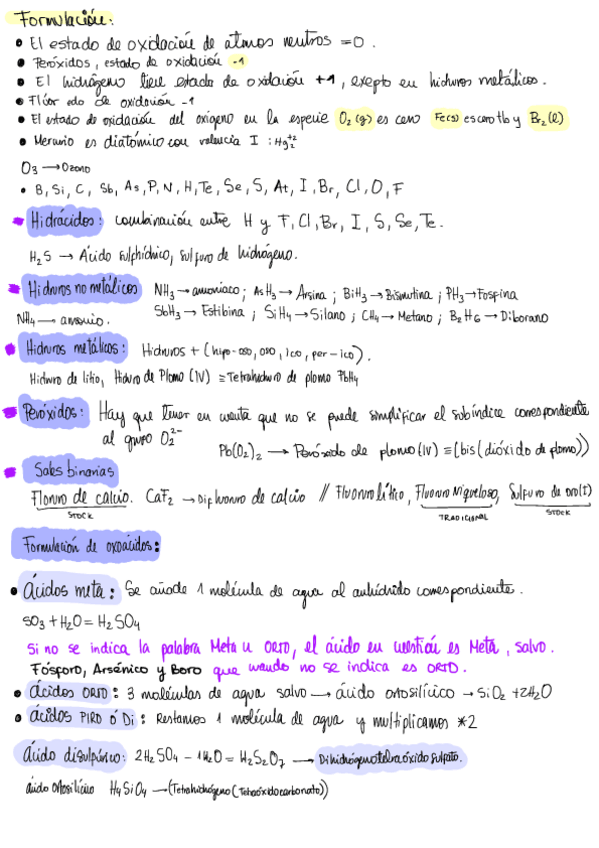 Formulación:
• El estado de oxidación de átmos neutros = 0.
• Peróxidos, estado de oxidación -1
• El hidrógeno tiene estado de oxidación +1, exepto en hidruros metálicos.
• Flúor edo de oxidación -1
• El estado de oxidación del oxígeno en la especie O₂(g) es cero Fe(s) es cero Hb y Br₂(l)
• Mercurio es diatómico con valencia I : Hg₂⁺²
O₃ → Ozono
• B, Si, C, Sb, As, P, N, H, Te, Se, S, At, I, Br, Cl, O, F
Hidrácidos: combinación entre H y F, Cl, Br, I, S, Se, Te.
H₂S → Ácido sulfhídrico, sulfuro de hidrógeno.
Hidruros no metálicos NH₃ → amoniaco ; AsH₃ → Arsina ; BiH₃ → Bismutina ; PH₃ → Fosfina
NH₄ → amonio. SbH₃ → Estibina ; SiH₄ → Silano ; CH₄ → Metano ; B₂H₆ → Diborano
Hidruros metálicos: Hidruros + (hipo-oso, oso, ico, per-ico).
Hidruro de litio, Hidruro de Plomo (IV) ≡ Tetrahidruro de plomo PbH₄
Peróxidos: Hay que tener en cuenta que no se puede simplificar el subíndice correspondiente
al grupo O₂²⁻
Pb(O₂)₂ → Peróxido de plomo (IV) ≡ (bis(dióxido de plomo))
Sales binarias
Floruro de calcio. CaF₂ → Difluoruro de calcio // Fluoruro lítico, Fluoruro Niqueloso, Sulfuro de oro(I)
STOCK TRADICIONAL STOCK
Formulación de oxoácidos:
• Ácidos meta: Se añade 1 molécula de agua al anhídrido correspondiente.
SO₃ + H₂O = H₂SO₄
Si no se indica la palabra Meta u ORTO, el ácido en cuestión es Meta, salvo.
Fósforo, Arsénico y Boro que cuando no se indica es ORTO.
• ácidos ORTO: 3 moléculas de agua salvo → ácido ortosilícico → SiO₂ + 2H₂O
• ácidos PIRO ó Di : Restamos 1 molécula de agua y multiplicamos *2
Ácido disulfúrico: 2H₂SO₄ - 1H₂O = H₂S₂O₇ →
ácido ortosilícico H₄SiO₄ → (Tetrahidrógeno(Tetraóxidocarbonato))